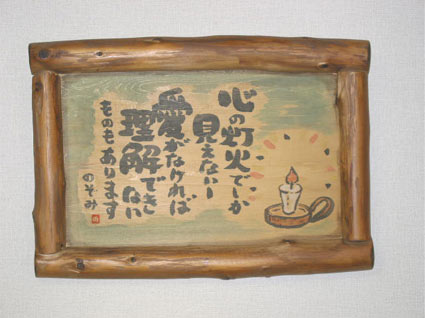 心の灯火でしか
見えないし
愛がなければ
理解できない
ものもあります
のぞみ